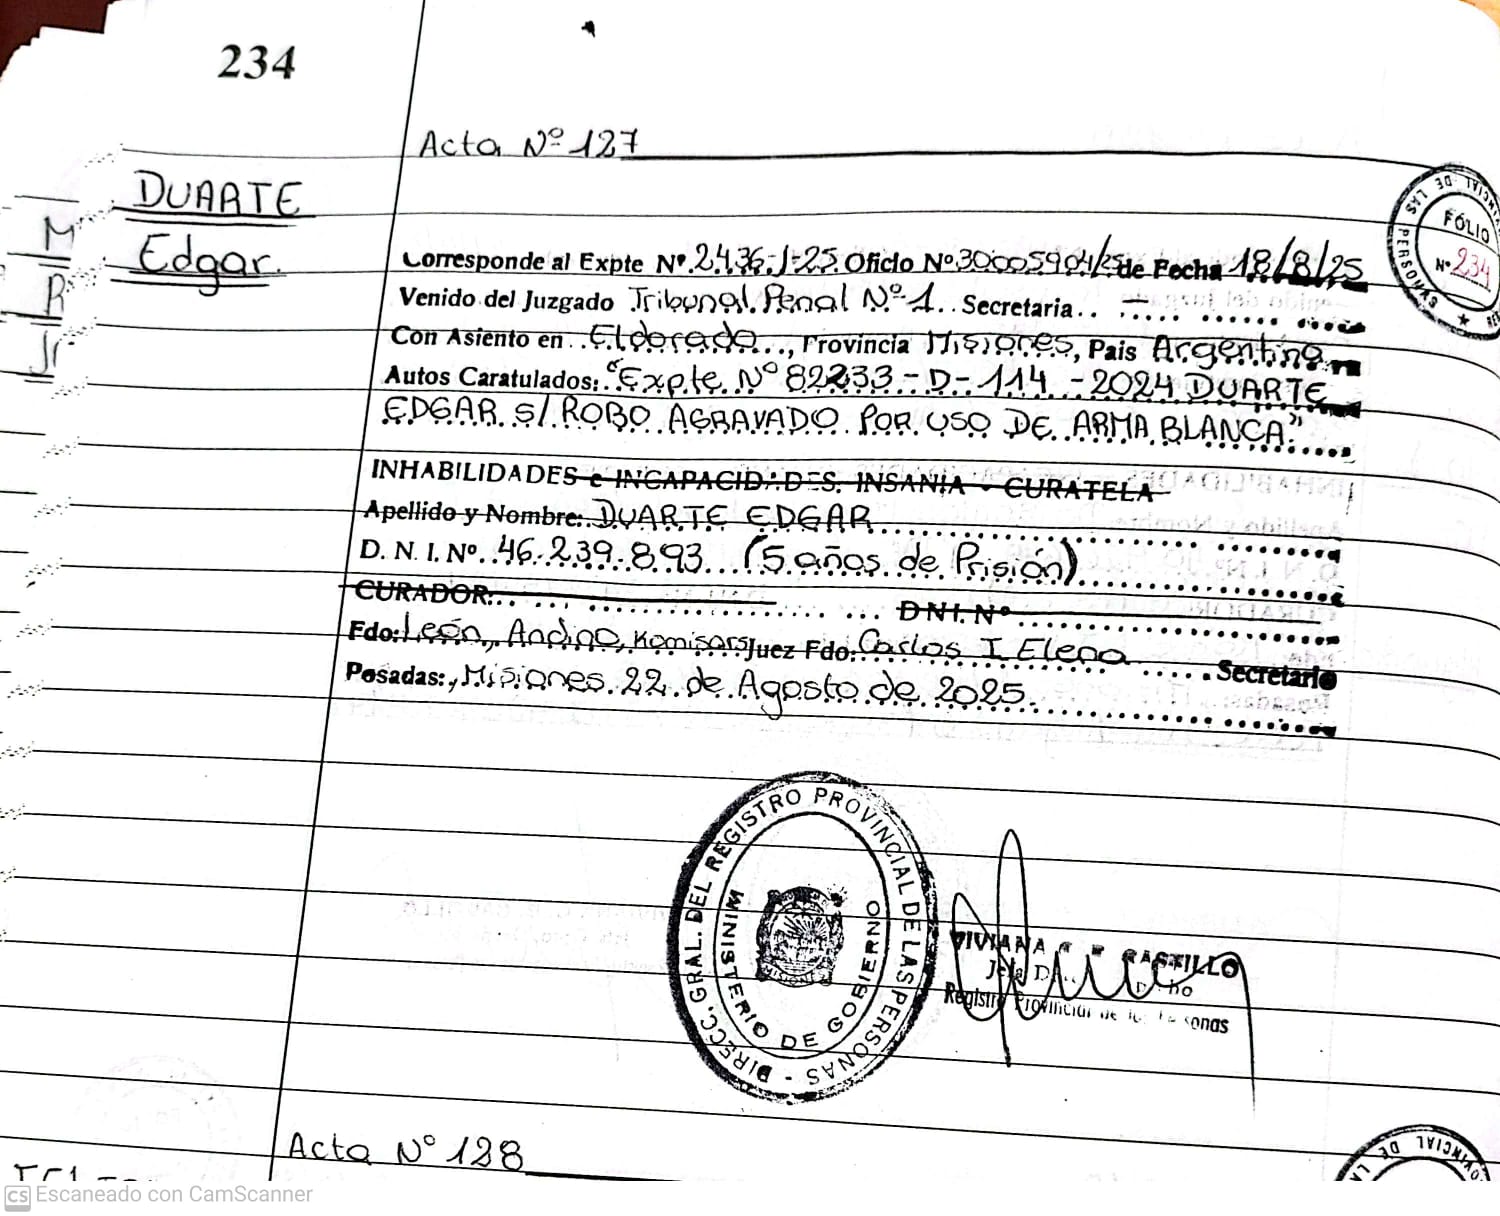 234
Acta Nº 127
DUARTE
Edgar.
Corresponde al Expte Nº.2436-J-25 Oficio Nº.30005904/25 de Fecha 18/8/25
Venido del Juzgado Tribunal Penal Nº 1.. Secretaria.. -
Con Asiento en ..Eldorado..., Provincia Misiones, Pais Argentina
Autos Caratulados: "Expte Nº 82233-D-114-2024 DUARTE
EDGAR S/ ROBO AGRAVADO POR USO DE ARMA BLANCA".
INHABILIDADES e INCAPACIDADES. INSANIA - CURATELA
Apellido y Nombre: DUARTE EDGAR
D. N. I. Nº. 46.239.893 (5 años de Prisión)
CURADOR: DNI. Nº
Fdo: León, Andino, Komisars Juez Fdo: Carlos I Elena Secretario
Posadas:, Misiones 22 de Agosto de 2025.
FOLIO
Nº 234
PROVINCIAL DE LAS PERSONAS
DIRECC. GRAL. DEL REGISTRO PROVINCIAL DE LAS PERSONAS -
MINISTERIO DE GOBIERNO
VIVIANA CASTILLO
Registro Provincial de las Personas
Acta Nº 128
CS Escaneado con CamScanner